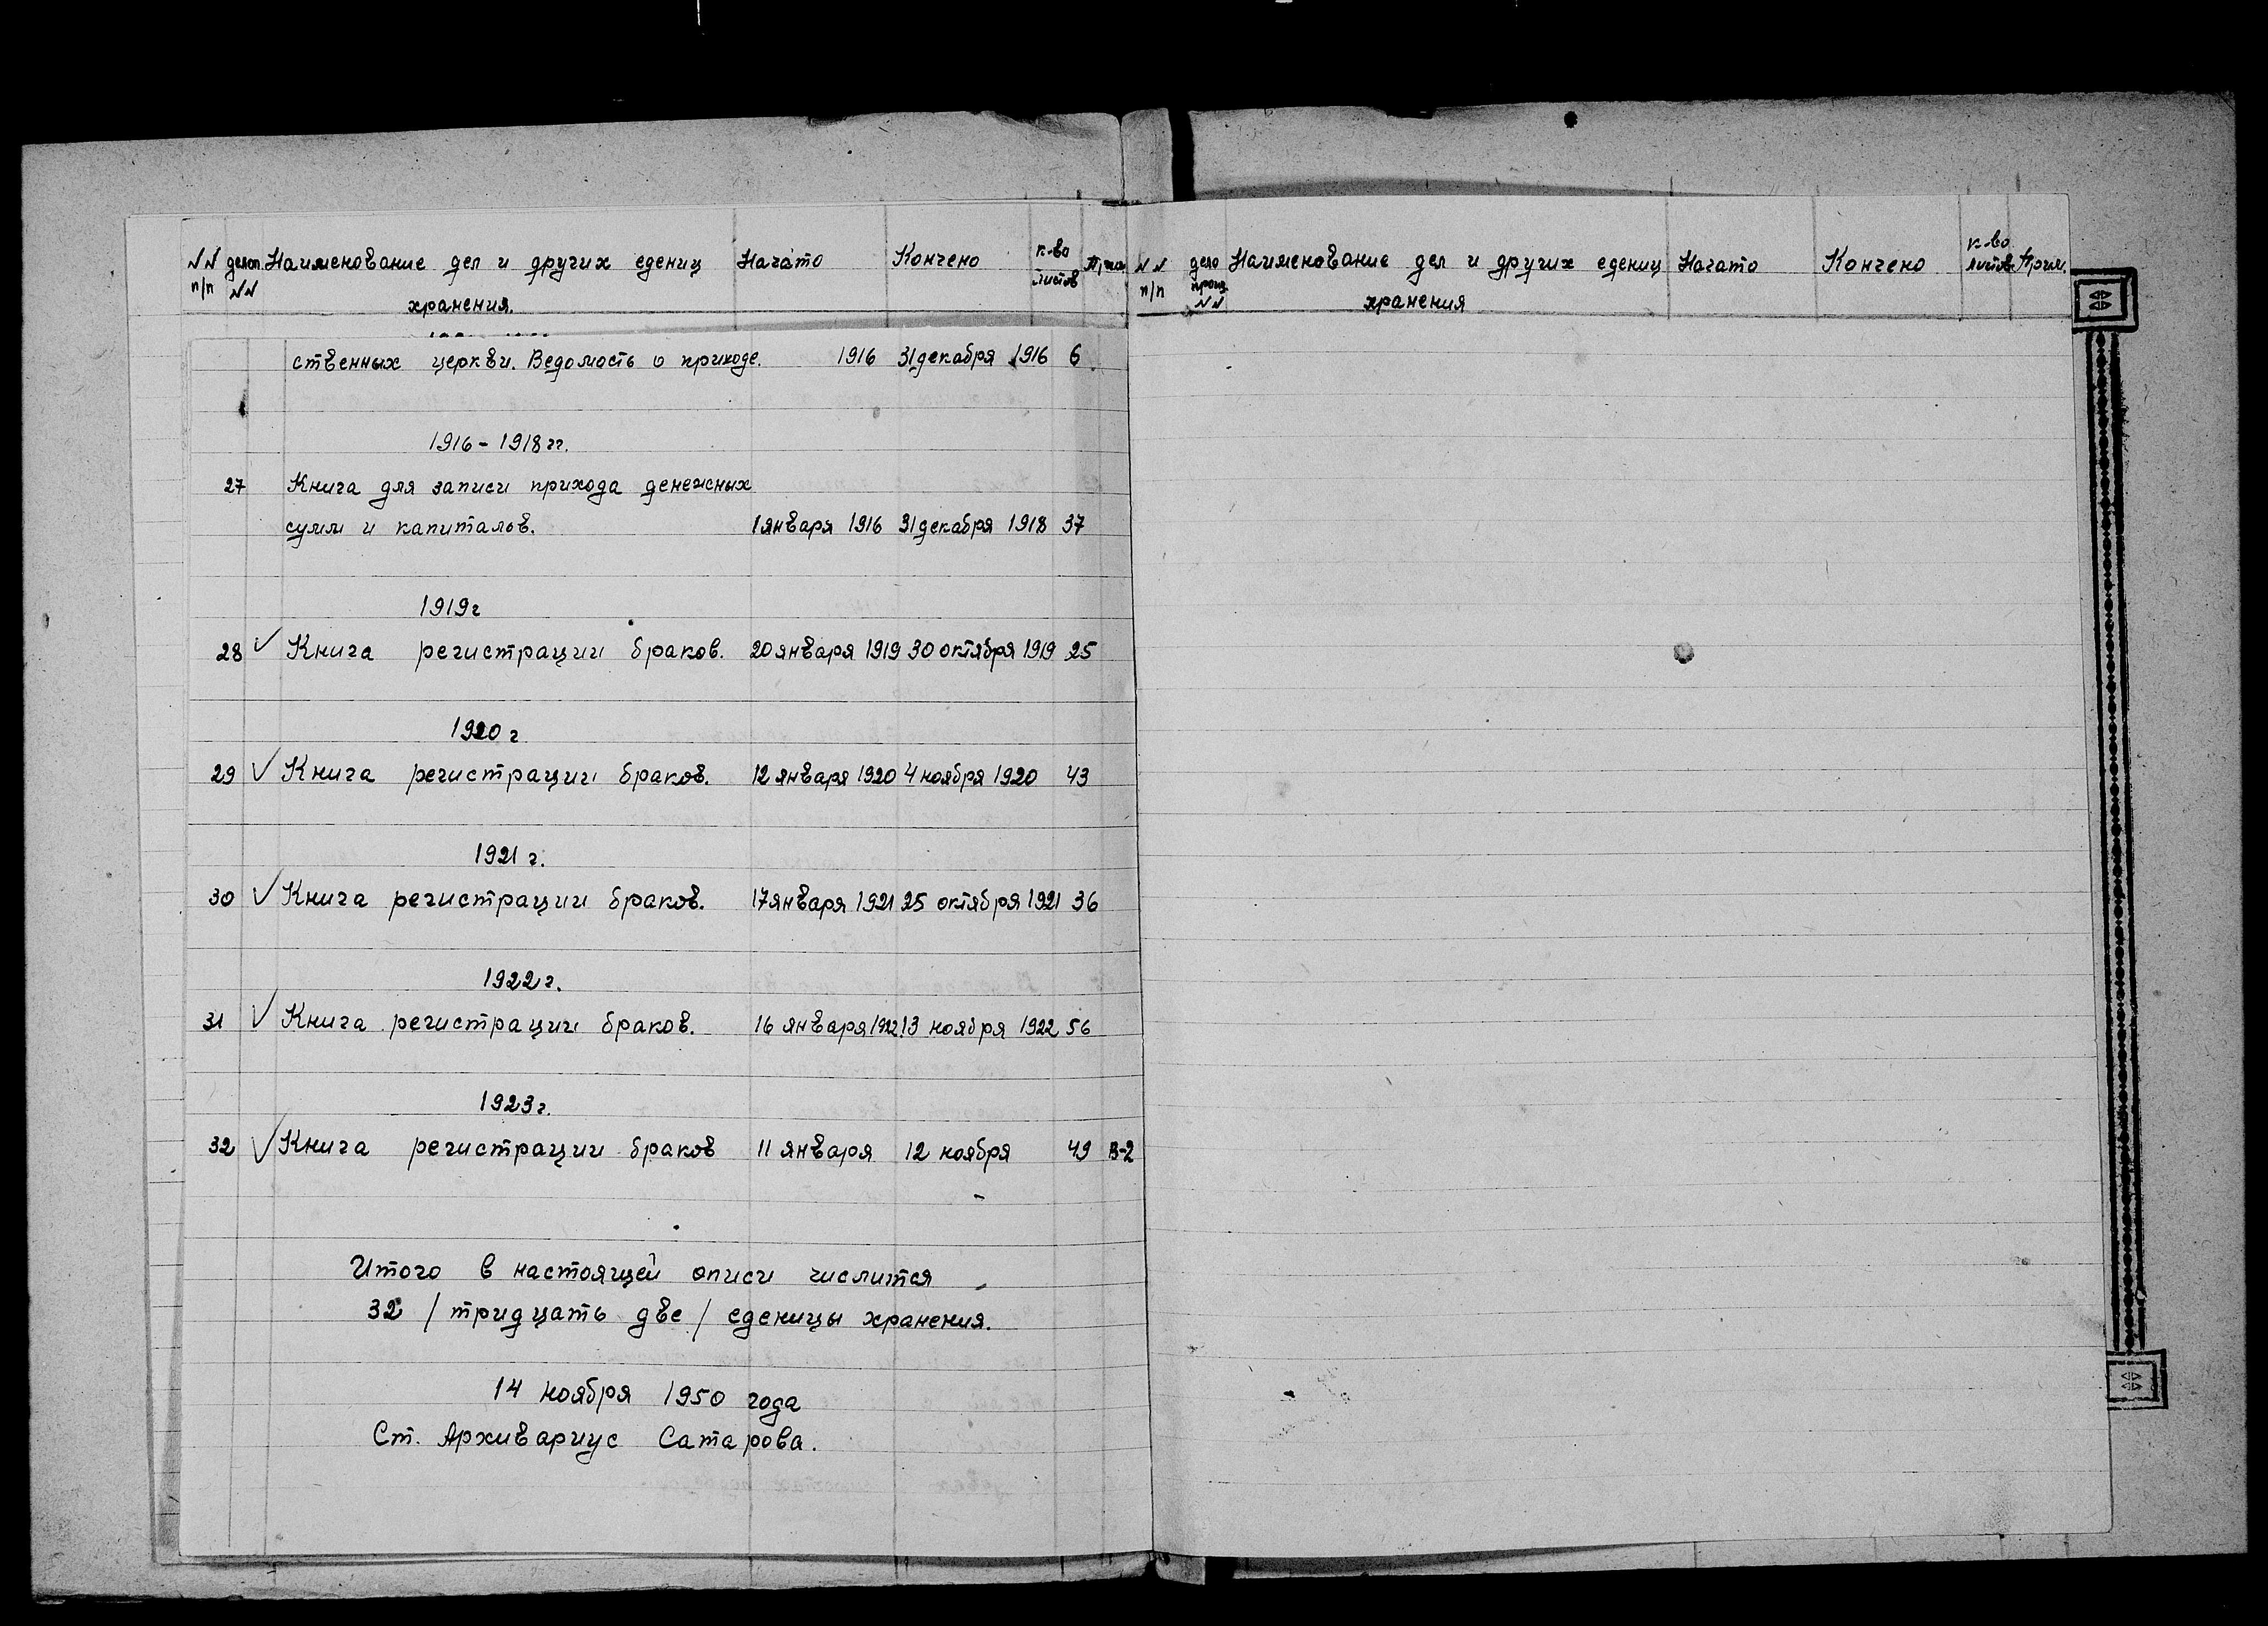 NN делоп. Наименование дел и других едениц Начато Кончено к-во Прим.
п/п NN хранения. листов
ственных церкви. Ведомость о приходе. 1916 31 декабря 1916 6.
1916 - 1918 гг.
27 Книга для записи прихода денежных
сумм и капиталов. 1 января 1916 31 декабря 1918 37
1919 г
28 ✓ Книга регистрации браков. 20 января 1919 30 октября 1919 25
1920 г
29 ✓ Книга регистрации браков. 12 января 1920 4 ноября 1920 43
1921 г.
30 ✓ Книга регистрации браков. 17 января 1921 25 октября 1921 36
1922 г.
31 ✓ Книга регистрации браков. 16 января 1922 13 ноября 1922 56
1923 г.
32 ✓ Книга регистрации браков 11 января 12 ноября 49 В-2
Итого в настоящей описи числится
32 / тридцать две / еденицы хранения.
14 ноября 1950 года
Ст. Архивариус Сатарова.
NN дело Наименование дел и других едениц Начато Кончено к-во Прим.
п/п произ. NN хранения листов